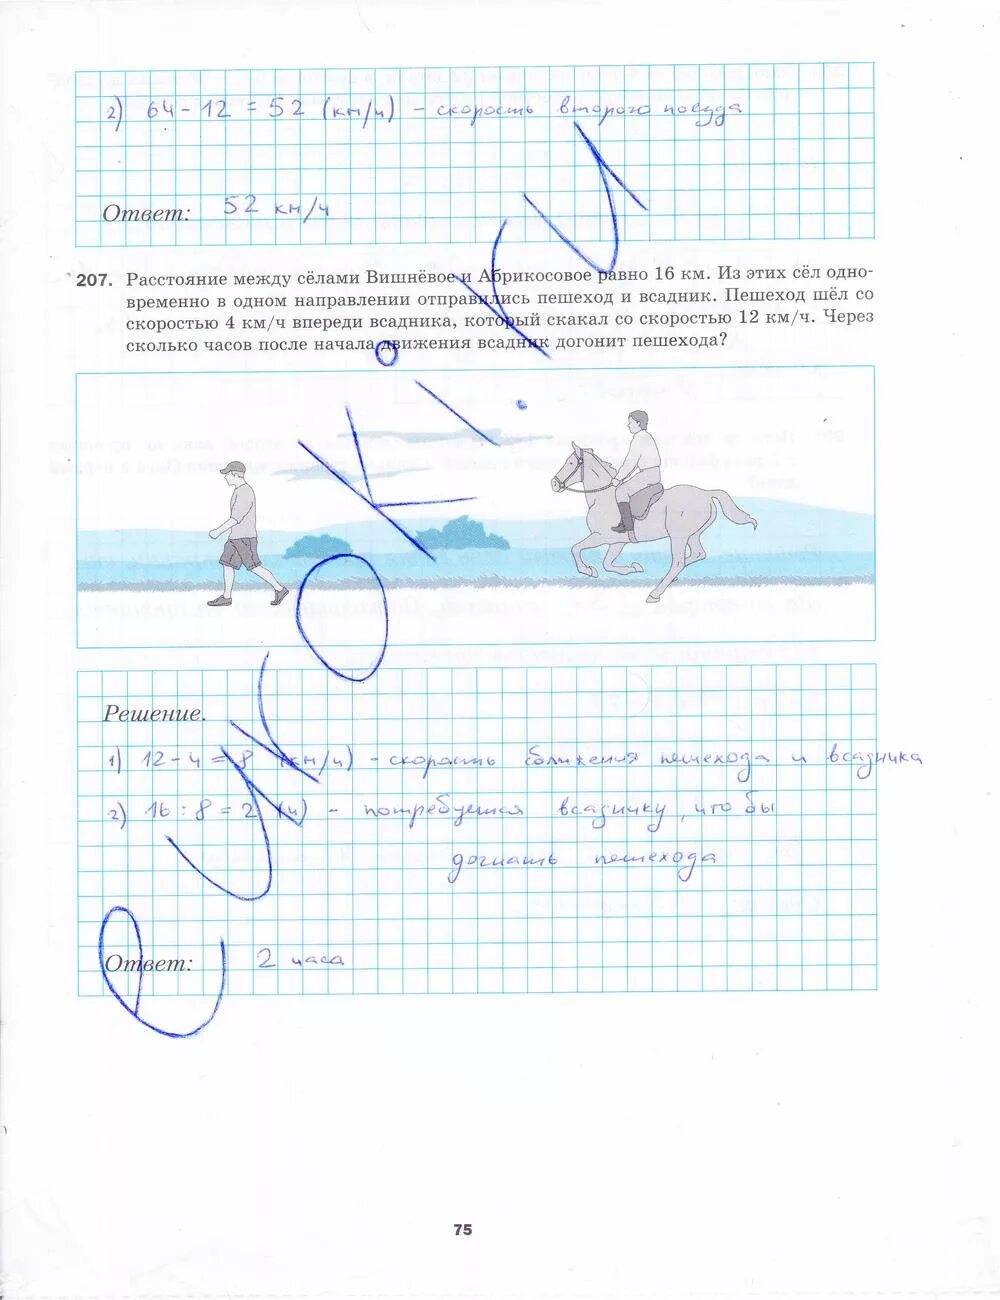 2) 64 - 12 = 52 (км/ч) - скорость второго поезда
Ответ: 52 км/ч
207. Расстояние между сёлами Вишнёвое и Абрикосовое равно 16 км. Из этих сёл одно-
временно в одном направлении отправились пешеход и всадник. Пешеход шёл со
скоростью 4 км/ч впереди всадника, который скакал со скоростью 12 км/ч. Через
сколько часов после начала движения всадник догонит пешехода?
Решение.
1) 12 - 4 = 8 (км/ч) - скорость сближения пешехода и всадника
2) 16 : 8 = 2 (ч) - потребуется всаднику, что бы
догнать пешехода
Ответ: 2 часа
75